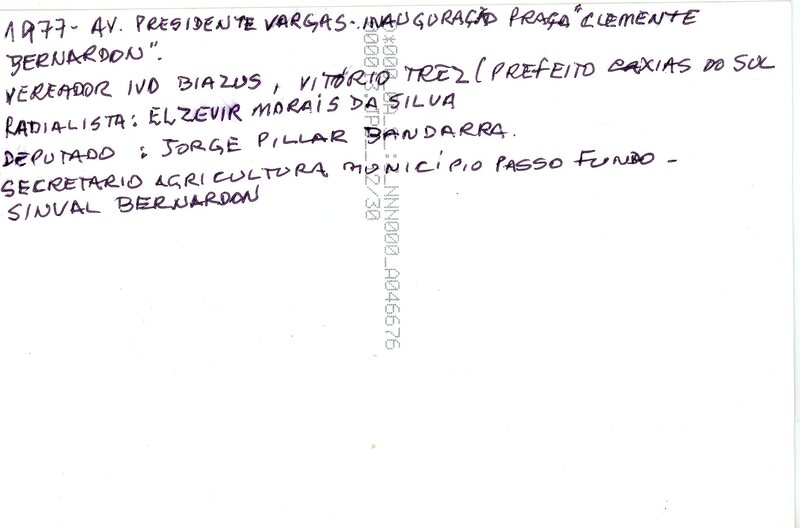 1977- AV. PRESIDENTE VARGAS- INAUGURAÇÃO PRAÇA "CLEMENTE
BERNARDON".
VEREADOR IVO BIAZUS, VITÓRIO TREZ (PREFEITO CAXIAS DO SUL
RADIALISTA: ELZEVIR MORAIS DA SILVA
DEPUTADO : JORGE PILLAR BANDARRA.
SECRETARIO AGRICULTURA MUNICÍPIO PASSO FUNDO -
SINVAL BERNARDON
NNN000_A046676